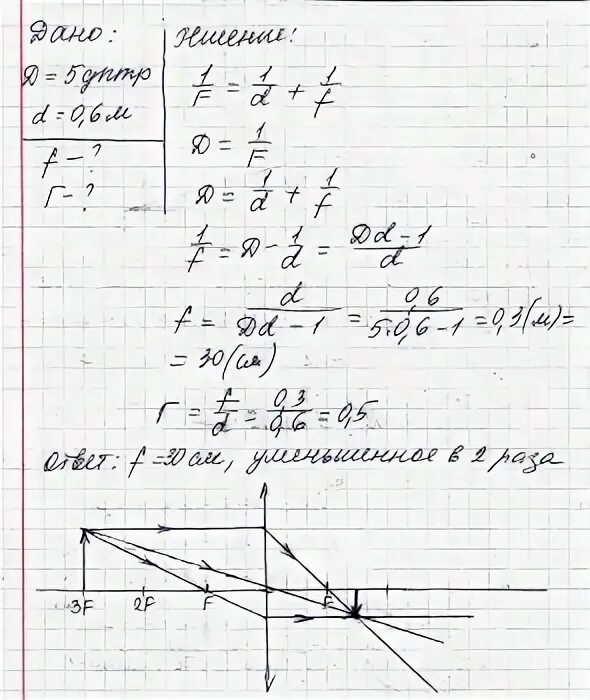 Дано:
D = 5 дптр
d = 0,6 м
f - ?
Г - ?
Решение:
1/F = 1/d + 1/f
D = 1/F
D = 1/d + 1/f
1/f = D - 1/d = (Dd - 1)/d
f = d/(Dd - 1) = 0,6/(5·0,6 - 1) = 0,3 (м) =
= 30 (см)
Г = f/d = 0,3/0,6 = 0,5
Ответ: f = 30 см, уменьшенное в 2 раза
3F 2F F F